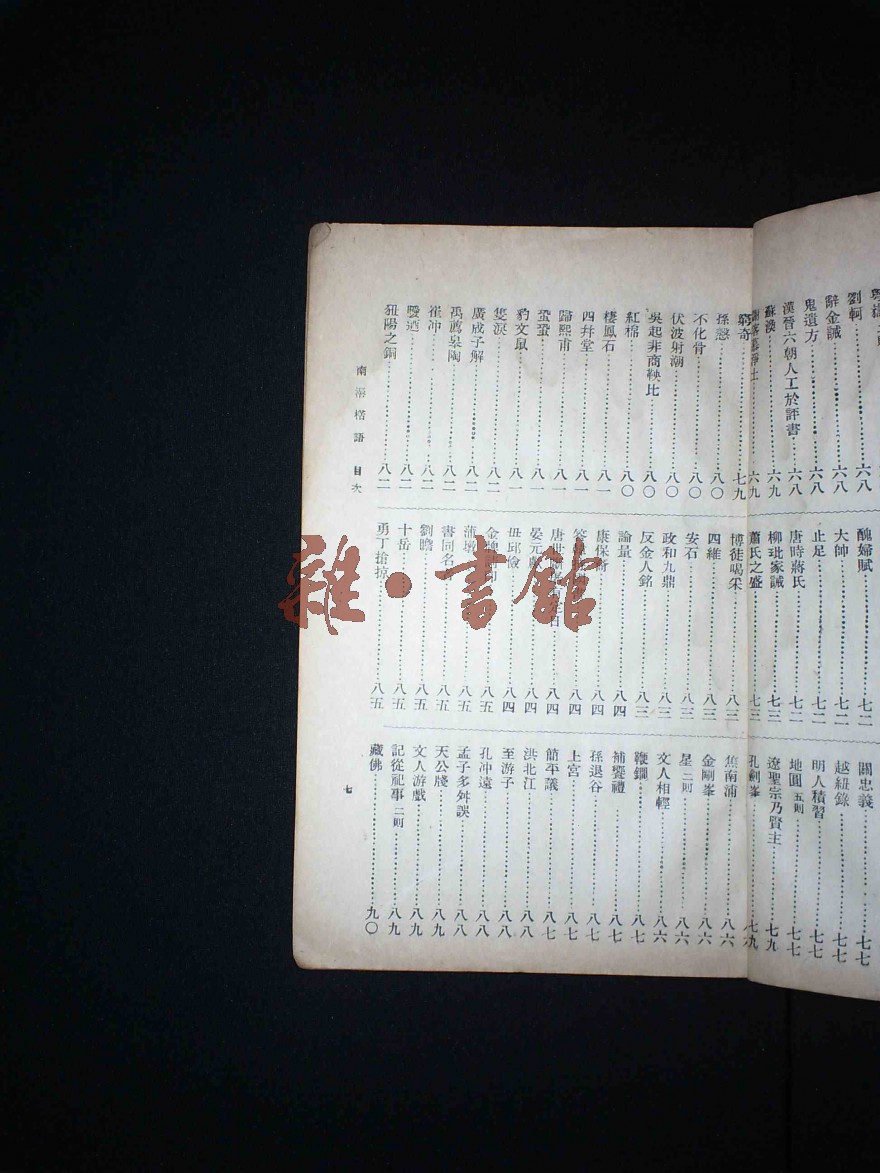 劉軻……六八
辭金誡……六八
鬼遺方……六八
漢晉六朝人工於評書……六八
蘇渙……六九
六九
窮奇……七九
孫慤……八〇
不化骨……八〇
伏波射潮……八〇
吳起非商鞅比……八〇
紅棉……八〇
棲鳳石……八一
四幷堂……八一
歸熙甫……八一
蛩蛩……八一
豹文鼠……八一
隻淚……八二
廣成子解……八二
禹薦皋陶……八二
崔冲……八二
八二
狃陽之銅……八二
醜婦賦……七二
大帥……七二
止足……七二
唐時蔣氏……七二
柳玭家誡……七三
蕭氏之盛……七三
博徒喝采……八三
四維……八三
安石……八三
政和九鼎……八三
反金人銘……八三
論量……八四
康保裔……八四
八四
唐世……八四
晏元獻……八四
毌邱儉……八四
金……印……八五
蒲墩……八五
書同名……八五
劉瞻……八五
十岳……八五
勇丁搶掠……八五
關忠義……七七
越紐錄……七七
明人積習……七七
地圓 五則……七七
遼聖宗乃賢主……七九
孔劍峯……七九
焦南浦……八六
金剛峯……八六
星 二則……八六
文人相輕……八六
鞭鐗……八七
補饗禮……八七
孫退谷……八七
上宮……八七
簡平議……八七
洪北江……八八
至游子……八八
孔冲遠……八八
孟子多舛誤……八八
天公牋……八九
文人游戲……八九
記從祀事 二則……八九
藏佛……九〇
南漘楛語 目次
七
雜·書館